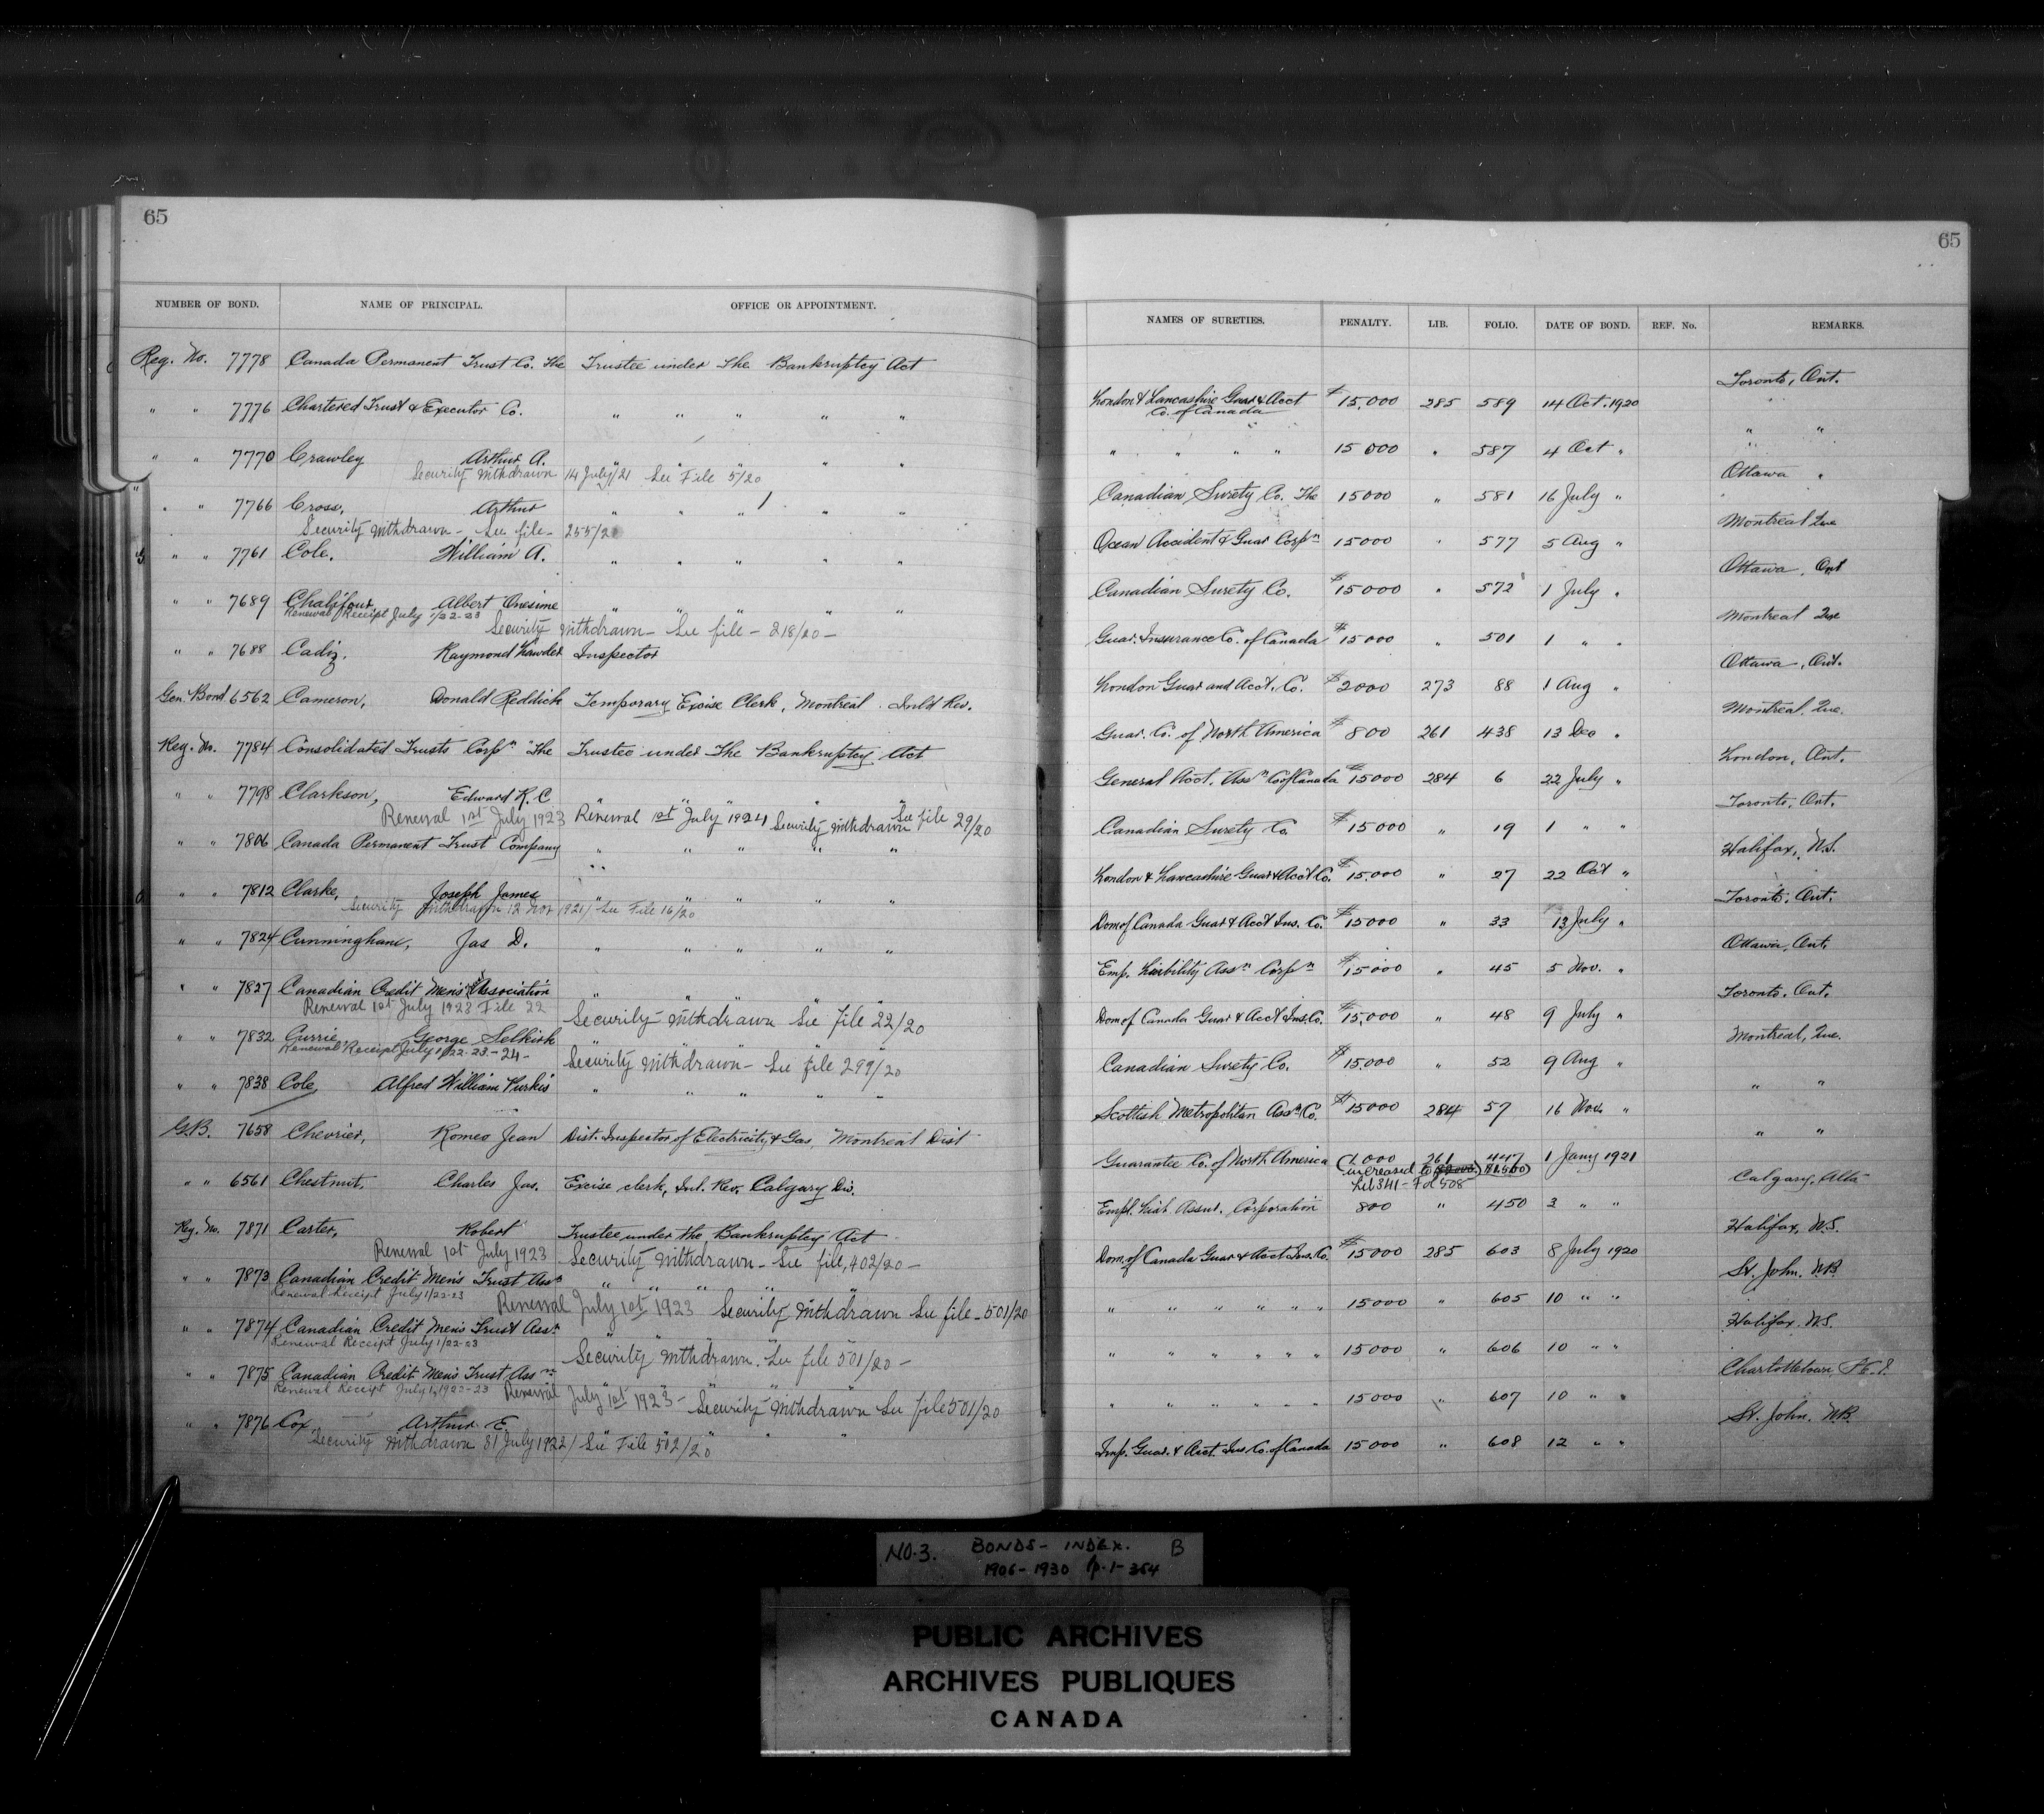 65
NUMBER OF BOND. NAME OF PRINCIPAL. OFFICE OR APPOINTMENT.
Reg. No. 7778 Canada Permanent Trust Co. The Trustee under The Bankruptcy Act
" " 7776 Chartered Trust & Executor Co. " " " " "
" " 7770 Crawley Arthur A. " " " " "
Security Withdrawn 14 July/21 See File 5/20
" " 7766 Cross, Arthur " " " " "
Security Withdrawn - See file - 255/20
" " 7761 Cole, William A. " " " " "
" " 7689 Chalifour, Albert Onesime " " " " "
Renewal Receipt July 1/22-23
Security Withdrawn - See file - 218/20 -
" " 7688 Cadiz, Raymond Lawder Inspector
Gen. Bond 6562 Cameron, Donald Reddick Temporary Excise Clerk, Montreal. Inl'd Rev.
Reg. No. 7784 Consolidated Trusts Corpn The Trustee under The Bankruptcy Act
" " 7798 Clarkson, Edward R. C " " " " "
Renewal 1st July 1923 Renewal 1st July 1924 Security Withdrawn See file 29/20
" " 7806 Canada Permanent Trust Company " " " " "
" " 7812 Clarke, Joseph James " " " " "
Security Withdrawn 12 Nov 1921 / See File 16/20
" " 7824 Cunningham, Jas D. " " " " "
" " 7827 Canadian Credit Men's Association " " " "
Renewal 1st July 1923 File 22 Security Withdrawn See file 22/20
" " 7832 Currie, George Selkirk
Renewal Receipt July 1/22-23-24-
Security Withdrawn - See file 299/20
" " 7838 Cole, Alfred William Purkis " " " " "
G.B. 7658 Chevrier, Romeo Jean Dist. Inspector of Electricity & Gas Montreal Dist
" " 6561 Chestnut, Charles Jas. Excise clerk, Inl. Rev. Calgary Div.
Reg. No. 7871 Carter, Robert Trustee under the Bankruptcy Act
Renewal 1st July 1923 Security Withdrawn - See file, 402/20 -
" " 7873 Canadian Credit Men's Trust Assn " " " " "
Renewal Receipt July 1/22-23
Renewal July 1st 1923 Security Withdrawn See file - 501/20
" " 7874 Canadian Credit Men's Trust Assn
Renewal Receipt July 1/22-23
Security Withdrawn. See file 501/20 -
" " 7875 Canadian Credit Men's Trust Assn
Renewal Receipt July 1, 1922-23 Renewal July 1st 1923 - Security Withdrawn See file 501/20
" " 7876 Cox, Arthur E. " " "
Security Withdrawn 31 July 1922 / See File 502/20
65
NAMES OF SURETIES. PENALTY. LIB. FOLIO. DATE OF BOND. REF. No. REMARKS.
Toronto, Ont.
London & Lancashire Guar & Acct Co. of Canada $15,000 285 589 14 Oct. 1920
" "
" " " " " 15 000 " 587 4 Oct "
Ottawa "
Canadian Surety Co. The 15000 " 581 16 July "
Montreal Que
Ocean Accident & Guar Corpn 15000 " 577 5 Aug "
Ottawa, Ont
Canadian Surety Co. $15000 " 572 1 July "
Montreal Que
Guar. Insurance Co. of Canada $15000 " 501 1 " "
Ottawa, Ont.
London Guar and Acct. Co. $2000 273 88 1 Aug "
Montreal. Que.
Guar. Co. of North America $800 261 438 13 Dec "
London, Ont.
General Acct. Assn Co of Canada $15000 284 6 22 July "
Toronto, Ont.
Canadian Surety Co $15000 " 19 1 " "
Halifax, N.S.
London & Lancashire Guar & Acc't Co. $15.000 " 27 22 Oct "
Toronto, Ont.
Dom of Canada Guar & Acc't Ins. Co. $15000 " 33 13 July "
Ottawa, Ont.
Emp. Liability Assn Corpn $15000 " 45 5 Nov. "
Toronto. Ont.
Dom of Canada Guar & Acc't Ins. Co. $15,000 " 48 9 July "
Montreal, Que.
Canadian Surety Co. $15.000 " 52 9 Aug "
" "
Scottish Metropolitan Assn Co. $15000 284 57 16 Nov. "
" "
Guarantee Co. of North America 1,000 261 447 1 Jany 1921
(increased to $1,500)
Lib 341 - Fol 508
Calgary. Alta
Empl. Liab. Assur. Corporation 800 " 450 3 " "
Halifax, N.S.
Dom. of Canada Guar & Acct Ins. Co. $15000 285 603 8 July 1920
St. John. NB
" " " " " " 15000 " 605 10 " "
Halifax. N.S.
" " " " " " 15000 " 606 10 " "
Charlottetown, P.E.I.
" " " " " " 15000 " 607 10 " "
St. John. NB
Imp. Guar. & Acct. Ins. Co. of Canada 15000 " 608 12 " "
NO. 3. BONDS - INDEX. B
1906 - 1930 p. 1 - 354
PUBLIC ARCHIVES
ARCHIVES PUBLIQUES
CANADA